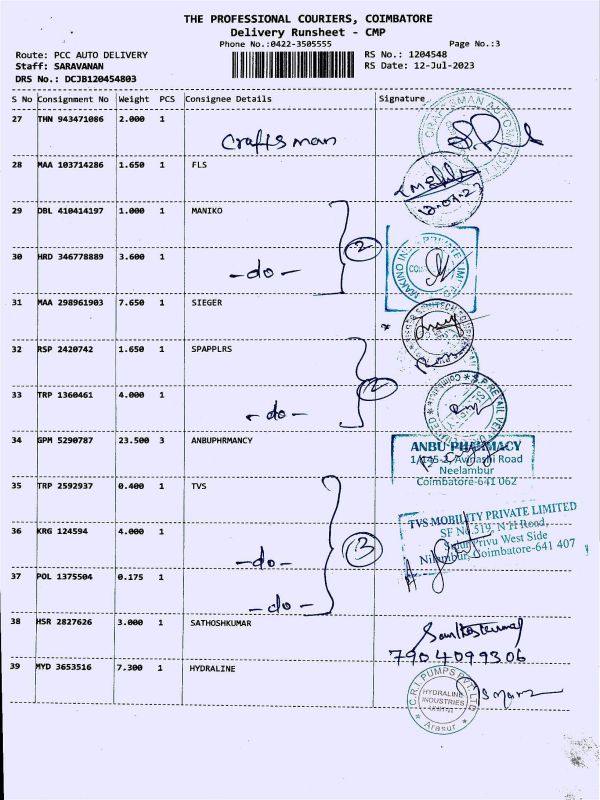 THE PROFESSIONAL COURIERS, COIMBATORE
Delivery Runsheet - CMP
Phone No.:0422-3505555 Page No.:3
Route: PCC AUTO DELIVERY RS No.: 1204548
Staff: SARAVANAN RS Date: 12-Jul-2023
DRS No.: DCJB120454803
S No Consignment No Weight PCS Consignee Details Signature
27 THN 943471086 2.000 1 Craftsman
CRAFTSMAN
28 MAA 103714286 1.650 1 FLS
29 DBL 410414197 1.000 1 MANIKO
2
30 HRD 346778889 3.600 1 -do-
MAKINO INDIA PRIVATE LIMITED
31 MAA 298961903 7.650 1 SIEGER
*
32 RSP 2420742 1.650 1 SPAPPLRS
2
33 TRP 1360461 4.000 1 -do-
34 GPM 5290787 23.500 3 ANBUPHRMANCY
ANBU PHARMACY
Avinashi Road
Neelambur
Coimbatore-641 062
35 TRP 2592937 0.400 1 TVS
TVS MOBILITY PRIVATE LIMITED
SF No.519, N H Road,
Privu West Side
Coimbatore-641 407
36 KRG 124594 4.000 1 -do-
3
37 POL 1375504 0.175 1 -do-
38 HSR 2827626 3.000 1 SATHOSHKUMAR
7904099306
39 MYD 3653516 7.300 1 HYDRALINE
C.R.I. PUMPS PVT. LTD
HYDRALINE
INDUSTRIES
Arasur